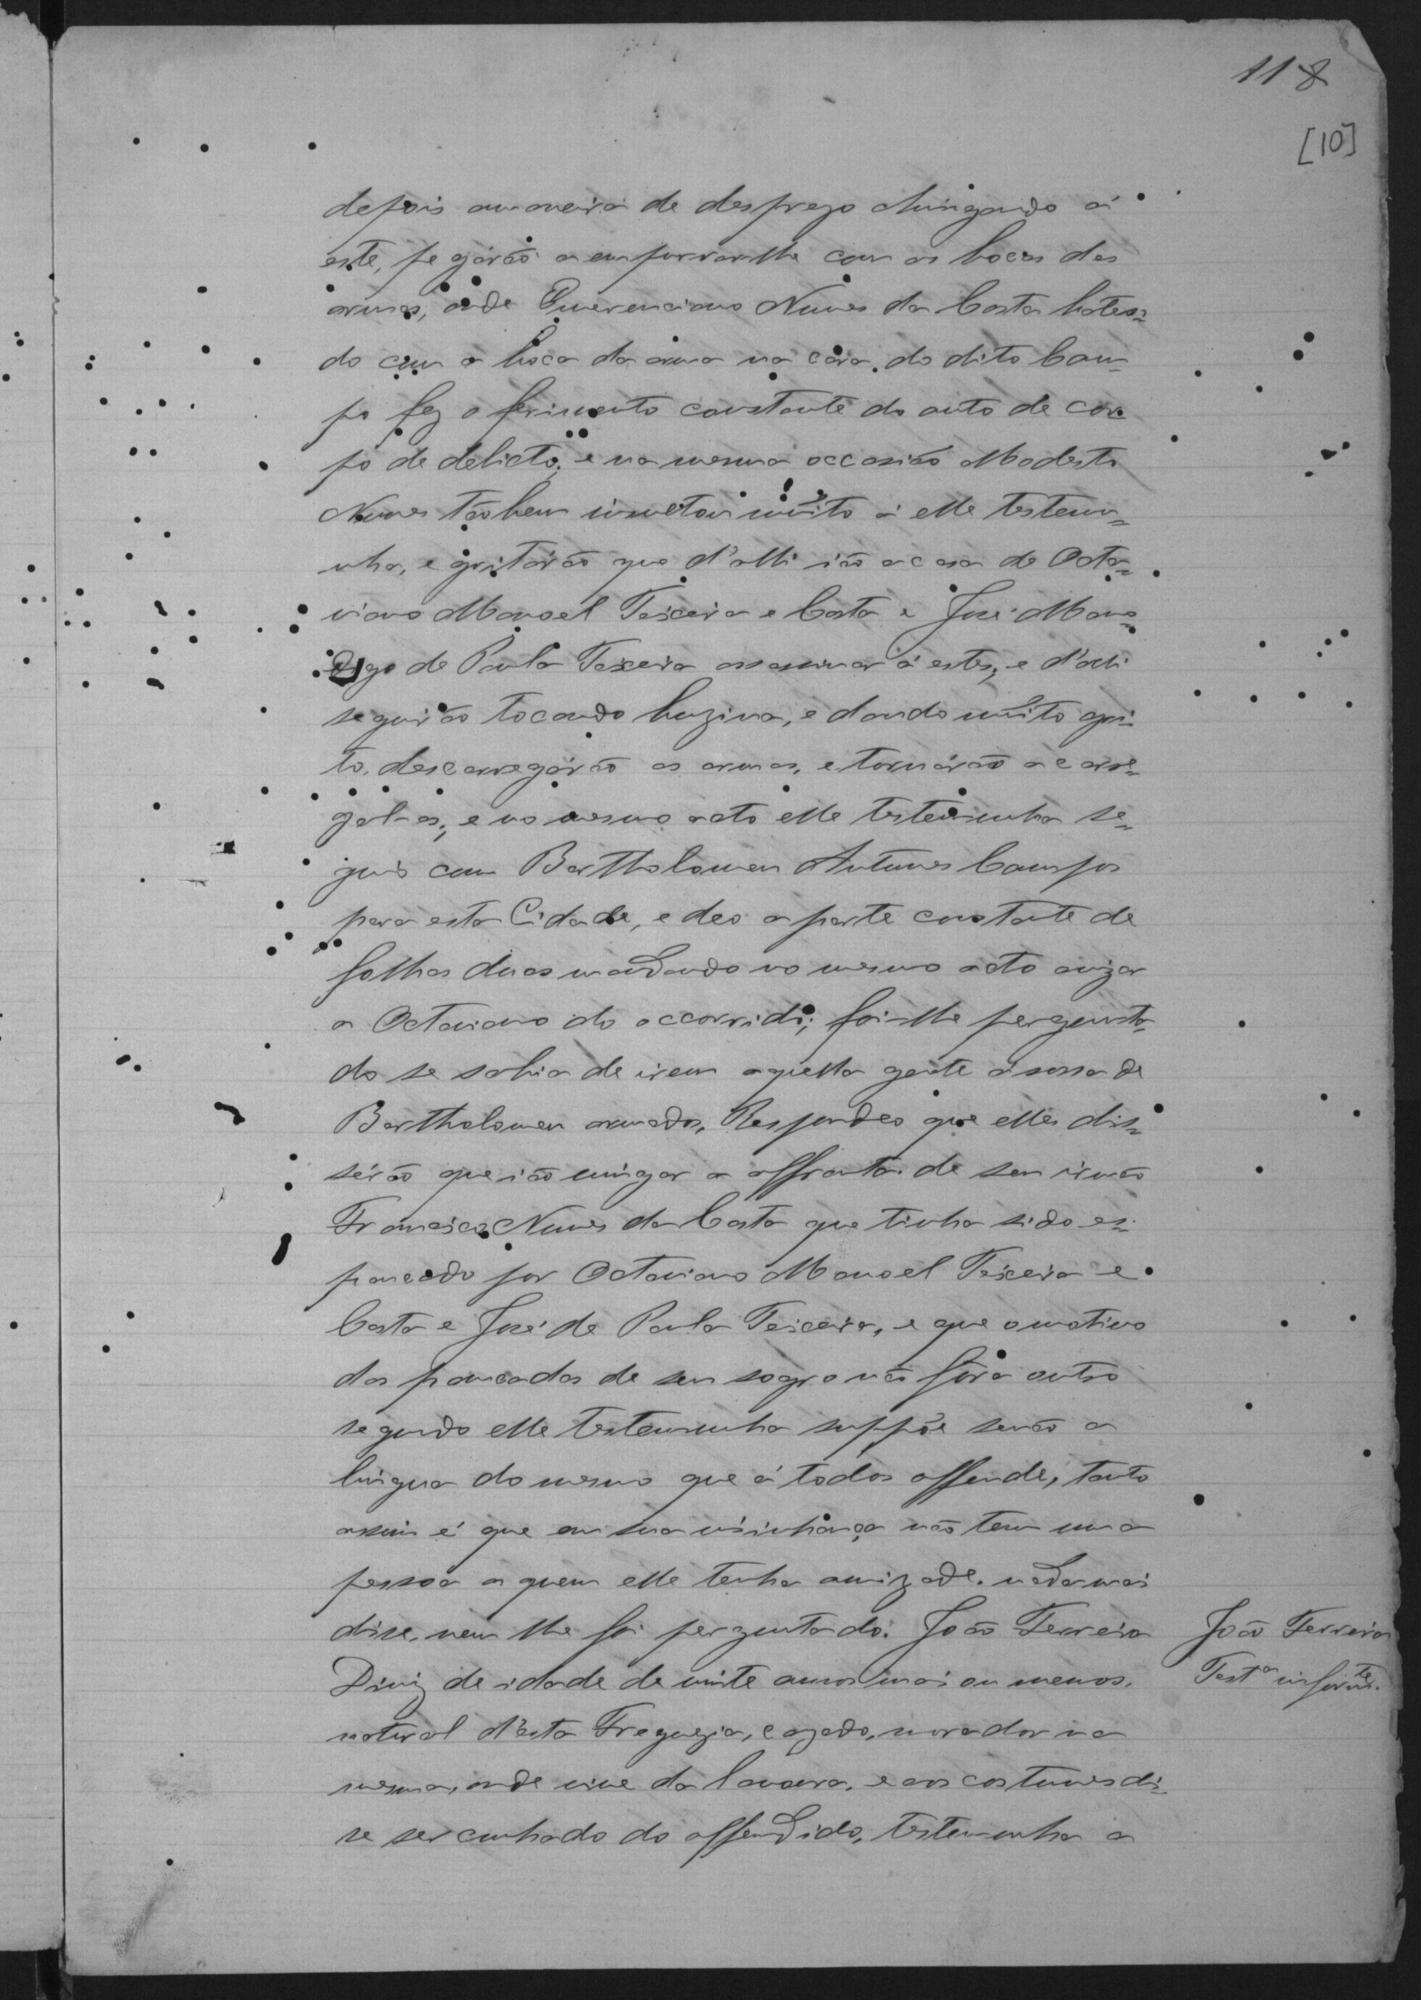 118
[10]
depois a maneira de desprezo chingando á
este, pegárão a empurrar-lhe com as bocas das
armas, onde Querenciano Nunes da Costa baten=
do com a boca da arma na cara do dito Cam-
po fez o ferimento constante do auto de cor
po de delicto, e na mesma occasião Modesto
Nunes tãobem insultou muito á elle testemu=
nha, e gritárão que d'alli ião a casa de Octa=
viano Manoel Teixeira e Costa e José
de Paula Teixeira assassinar á estes, e d'alli
seguirão tocando buzina, e dando muito gri-
to, descarregárão as armas, e tornárão a carre=
gal-as; e no mesmo acto elle testemunha se=
guio com Bartholomeu Antunes Campos
para esta Cidade, e deo a parte constante de
folhas duas mandando no mesmo acto avizar
a Octaviano do occorrido; foi-lhe pergunta-
do se sabia de irem aquella gente á casa de
Bartholomeu armados, Respondeo que elles dis=
sérão que ião vingar a affronta de seu irmão
Francisco Nunes da Costa que tinha sido es=
pancado por Octaviano Manoel Teixeira e
Costa e José de Paula Teixeira, e que o motivo
das pancadas de seu sogro não fôra outro
segundo elle testemunha suppõe senão a
lingua do mesmo que á todos offende, tanto
assim é que em sua visinhança não tem uma
pessoa a quem elle tenha amizade. nada mais
disse, nem lhe foi perguntado. João Ferreira
Diniz de idade de vinte annos mais ou menos,
natural d'esta Freguezia, cazado, morador na
mesma, onde vive da lavoura, e aos costumes di=
se ser cunhado do offendido, testemunha a
João Ferreira
Testª informte.